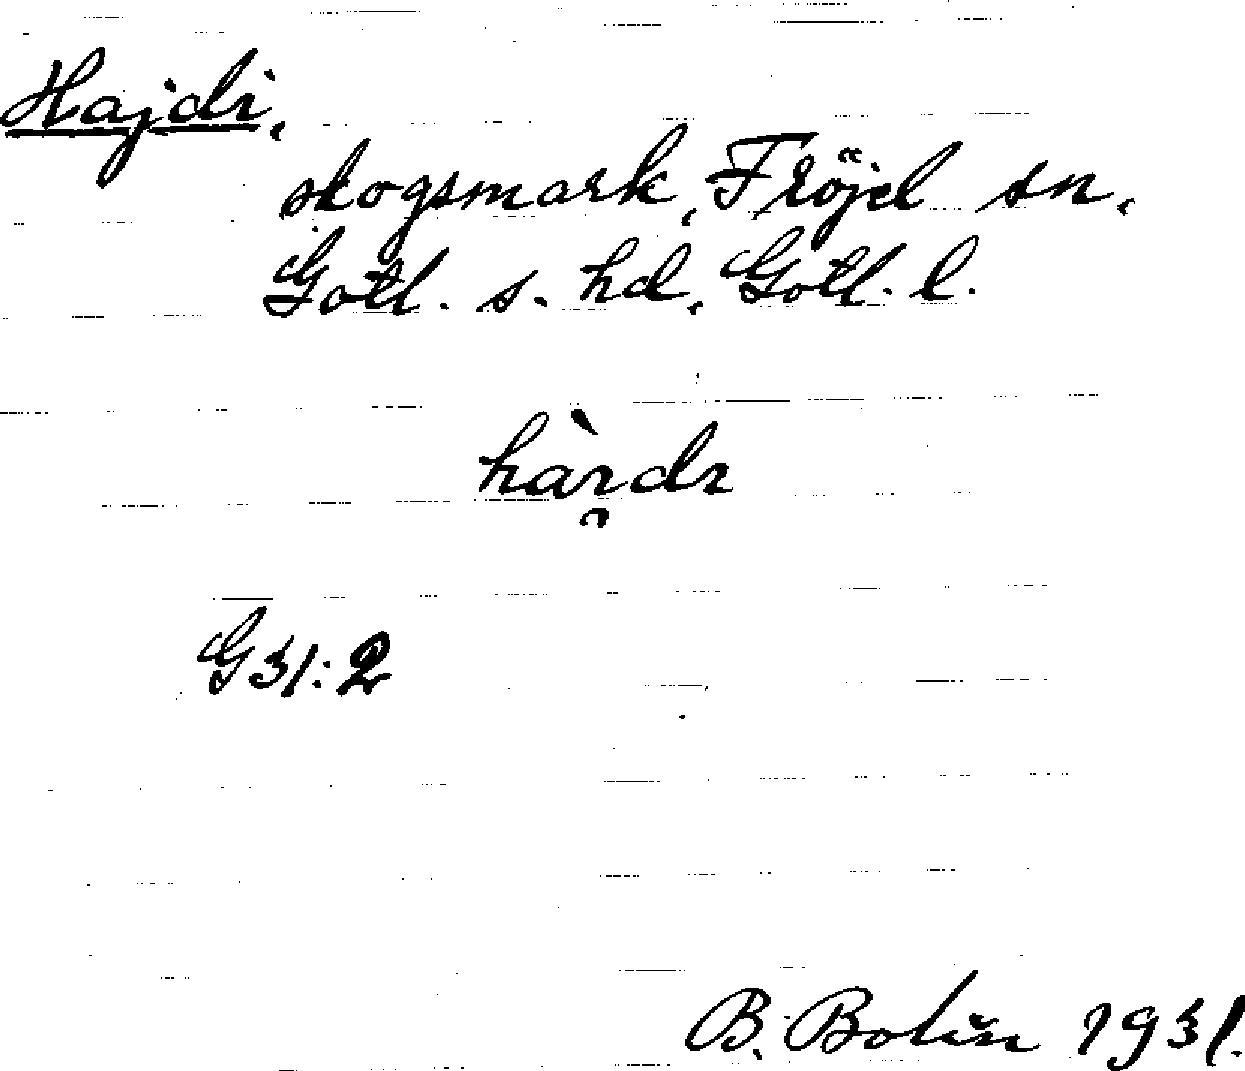 Hajdi,
skogsmark, Fröjel sn,
Gotl. s. hd, Gotl. l.
G 31:2
B. Bolin 1931.